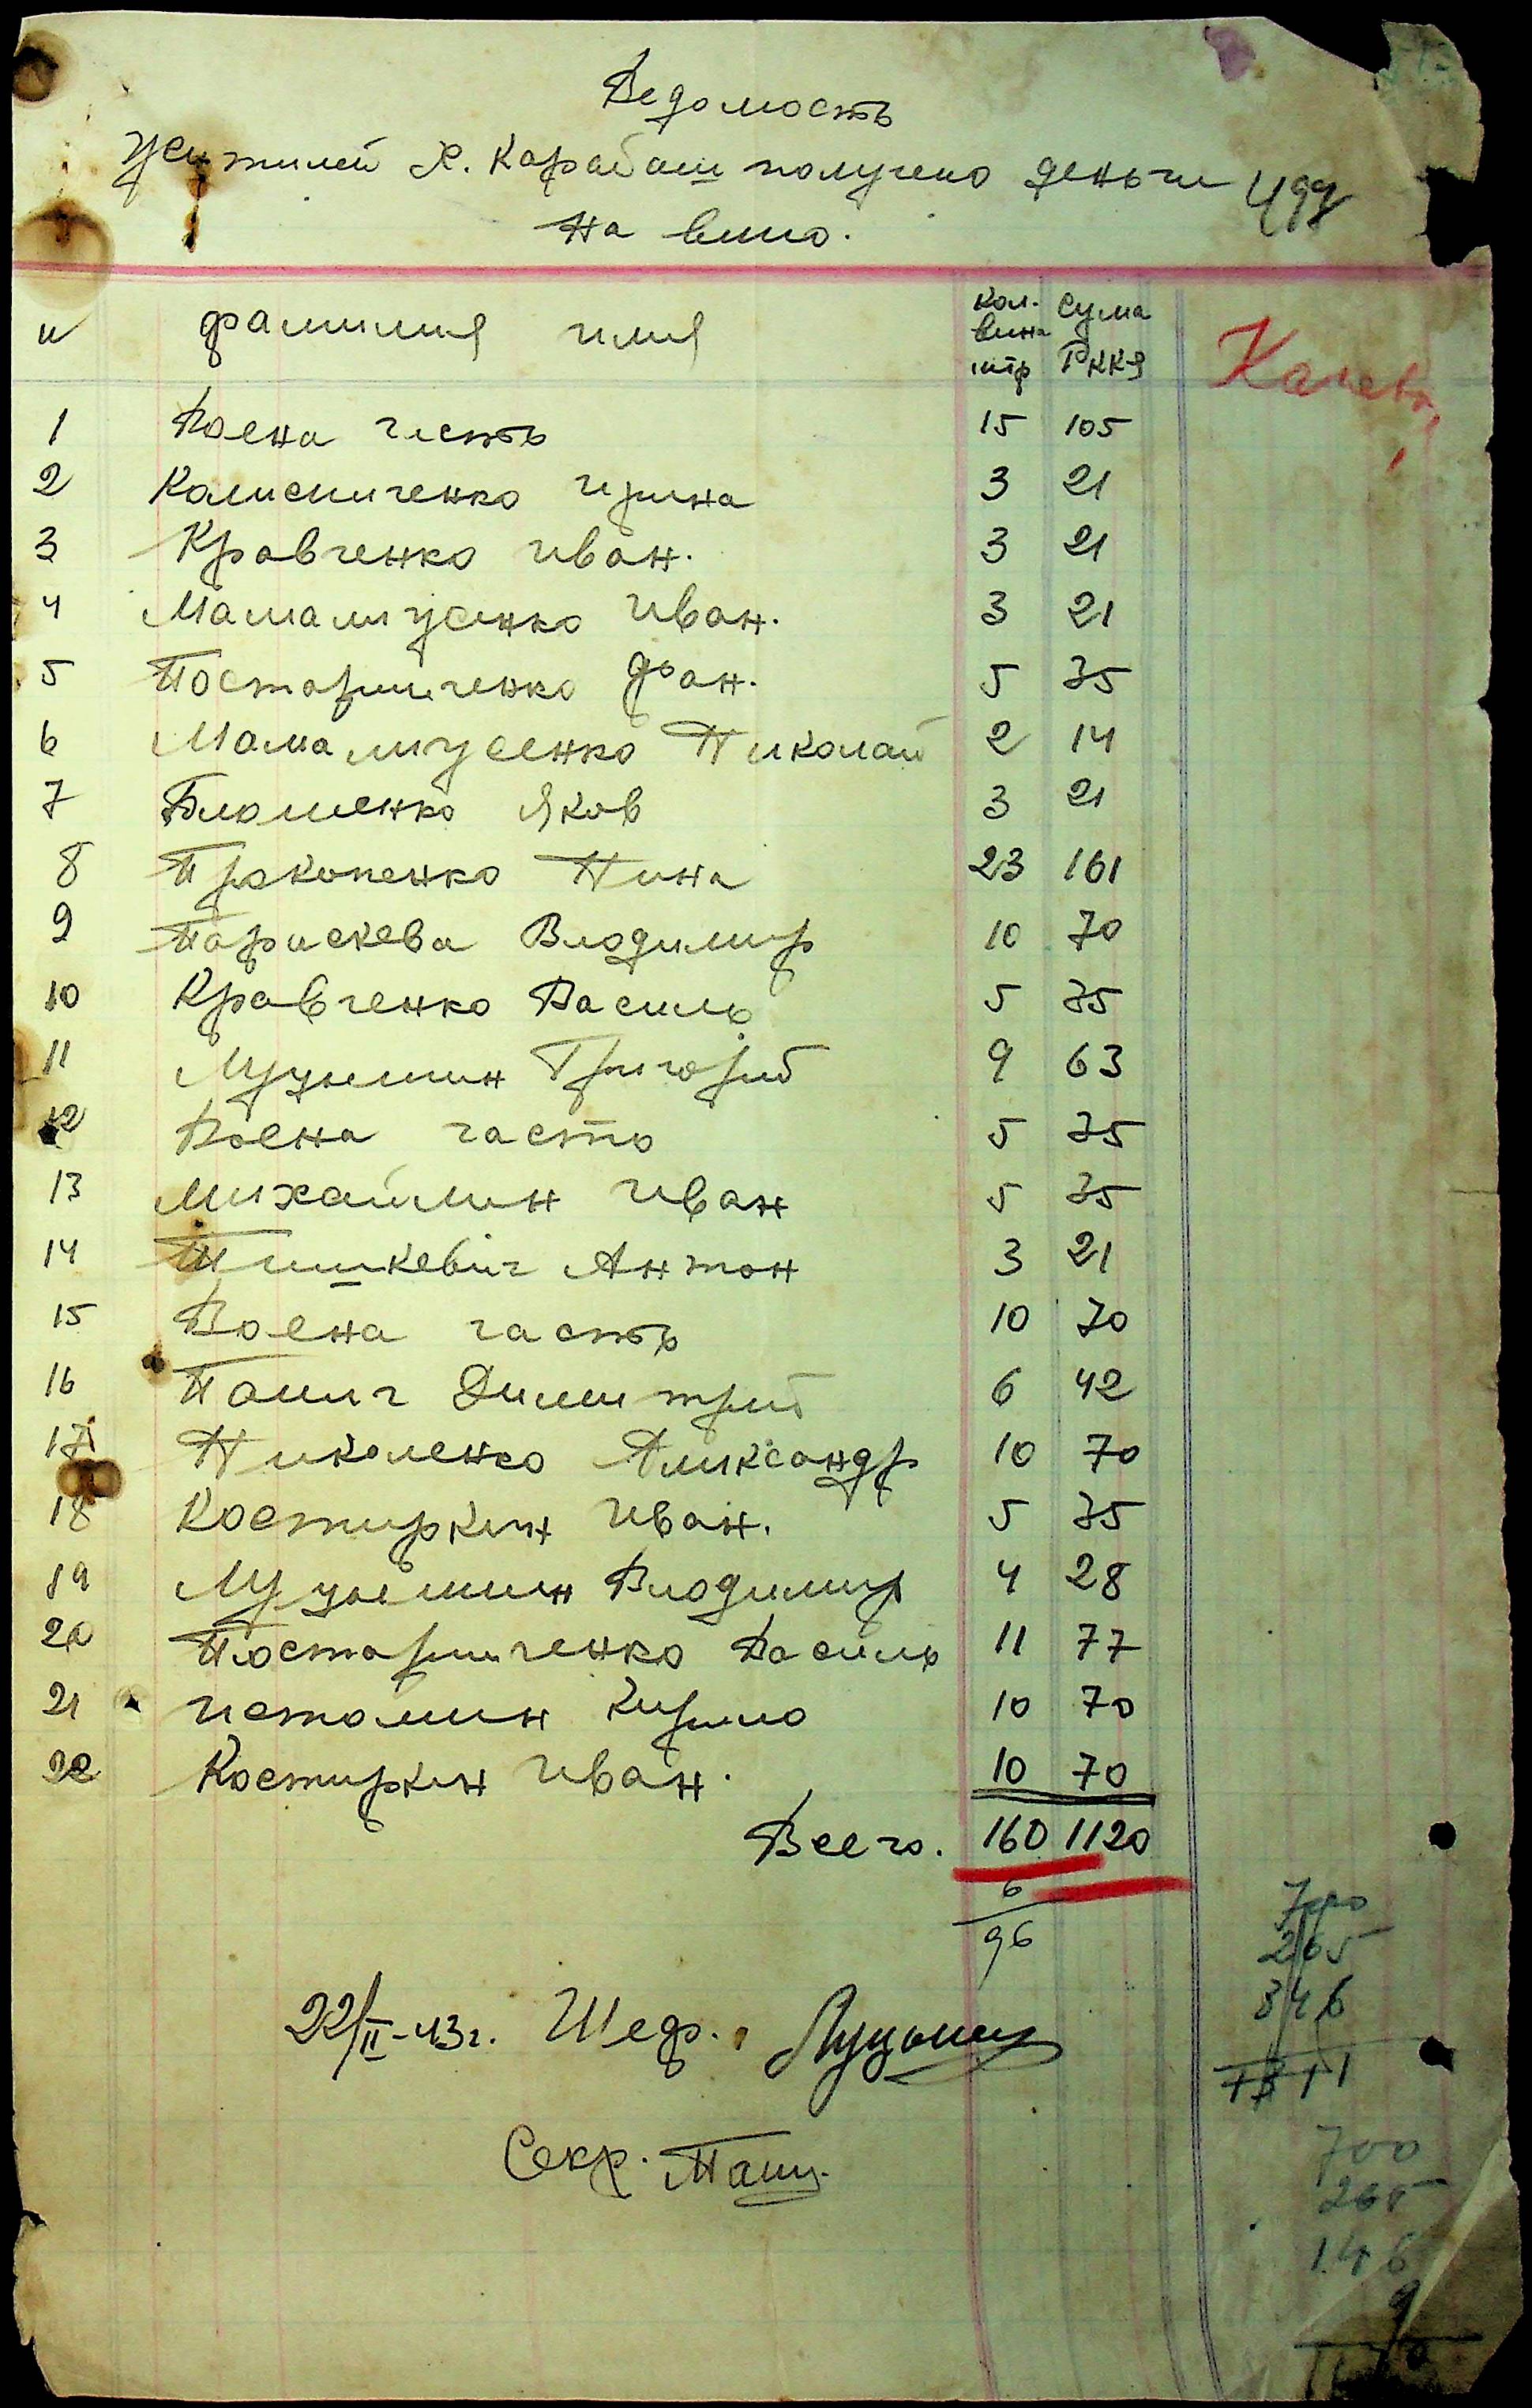 Ведомость
жителей х. Карабаш получено деньги
на вино.
фамилия имя
Кол. вина литр
Сума РККЯ
1 Воена часть 15 105
2 Колисниченко Ирина 3 21
3 Кравченко Иван. 3 21
4 Мамалигусенко Иван. 3 21
5 Постарниченко 5 35
6 Мамалигусенко Николай 2 14
7 Блошенко Яков 3 21
8 Прокопенко Нина 23 161
9 Параскева Влодимир 10 70
10 Кравченко Василь 5 35
11 Луцышин Григорий 9 63
12 Воена часть 5 35
13 Михайлин Иван 5 35
14 Тишкевич Антон 3 21
15 Воена часть 10 70
16 Панич Димитрий 6 42
17 Николенко Александр 10 70
18 Костиркин Иван. 5 35
19 Луцышин Влодимир 4 28
20 Постарниченко Василь 11 77
21 Истомин Кирило 10 70
22 Костиркин Иван. 10 70
Всего. 160 1120
6
96
22/II-43г.
Секр.
700
265
346
1311
700
265
146